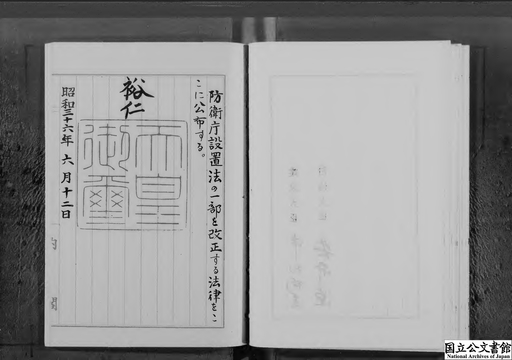 防衛庁設置法の一部を改正する法律をこ
こに公布する。
裕仁
天皇
御璽
昭和三十六年六月十二日
内閣
国立公文書館
National Archives of Japan